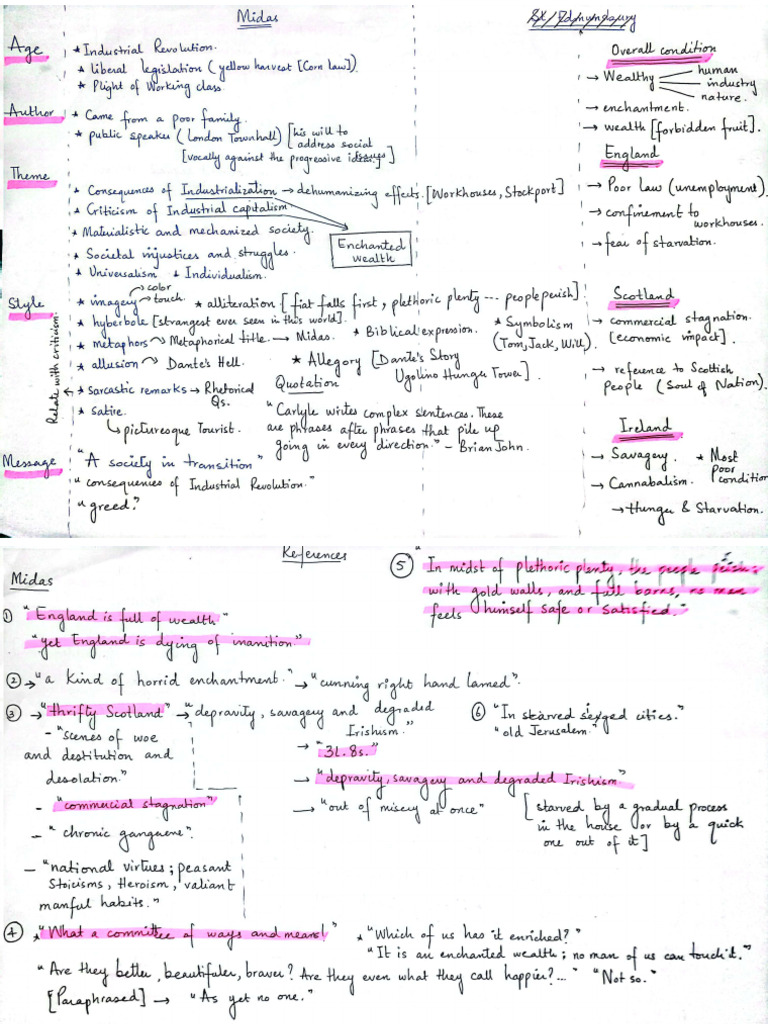 Midas
Age
* Industrial Revolution.
* liberal legislation (yellow harvest [Corn law]).
* Plight of Working class
Author
* Came from a poor family.
* public speaker (London Townhall) [his will to address social
[vocally against the progressive ideas]
Theme
* Consequences of Industrialization → dehumanizing effects. [Workhouses, Stockport]
* Criticism of Industrial capitalism
* Materialistic and mechanized society.
Enchanted wealth
* Societal injustices and struggles.
* Universalism * Individualism.
Style
Relate with criticism.
* imagery → color
→ touch.
* alliteration [fiat falls first, plethoric plenty --- people perish]
* hyperbole [strangest ever seen in this world].
* metaphors → Metaphorical title. → Midas.
* Biblical expression.
* Symbolism (Tom, Jack, Will).
* allusion → Dante's Hell.
* Allegory [Dante's Story Ugolino Hunger Tower].
* sarcastic remarks → Rhetorical Qs.
* satire.
→ picturesque Tourist.
Quotation
"Carlyle writes complex sentences. These
are phrases after phrases that pile up
going in every direction." - Brian John.
Message
"A society in transition"
"consequences of Industrial Revolution."
"greed."
Overall condition
→ Wealthy
human
industry
nature.
→ enchantment.
→ wealth [forbidden fruit].
England
→ Poor law (unemployment).
→ confinement to workhouses.
→ fear of starvation.
Scotland
→ commercial stagnation.
[economic impact].
→ reference to Scottish
people (Soul of Nation).
Ireland
→ Savagery. * Most poor condition
→ Cannabalism.
→ Hunger & Starvation.
References
Midas
① "England is full of wealth"
"yet England is dying of inanition."
② → "a kind of horrid enchantment." → "cunning right hand lamed".
③ → "thrifty Scotland" → "depravity, savagery and degraded
Irishism."
- "scenes of woe
and destitution and
desolation."
- "commercial stagnation"
- "chronic gangrene".
- "national virtues; peasant
Stoicisms, Heroism, valiant
manful habits."
→ "3L. 8s."
→ "depravity, savagery and degraded Irishism"
→ "out of misery at once"
[starved by a gradual process
in the house or by a quick
one out of it]
④ * "What a committee of ways and means!"
* "Which of us has it enriched?"
"It is an enchanted wealth; no man of us can touch it."
"Are they better, beautifuler, braver? Are they even what they call happier?..." "Not so."
[Paraphrased] → "As yet no one."
⑤ "In midst of plethoric plenty, the people perish;
with gold walls, and full barns, no man
feels himself safe or satisfied."
⑥ "In starved sieged cities."
"old Jerusalem"